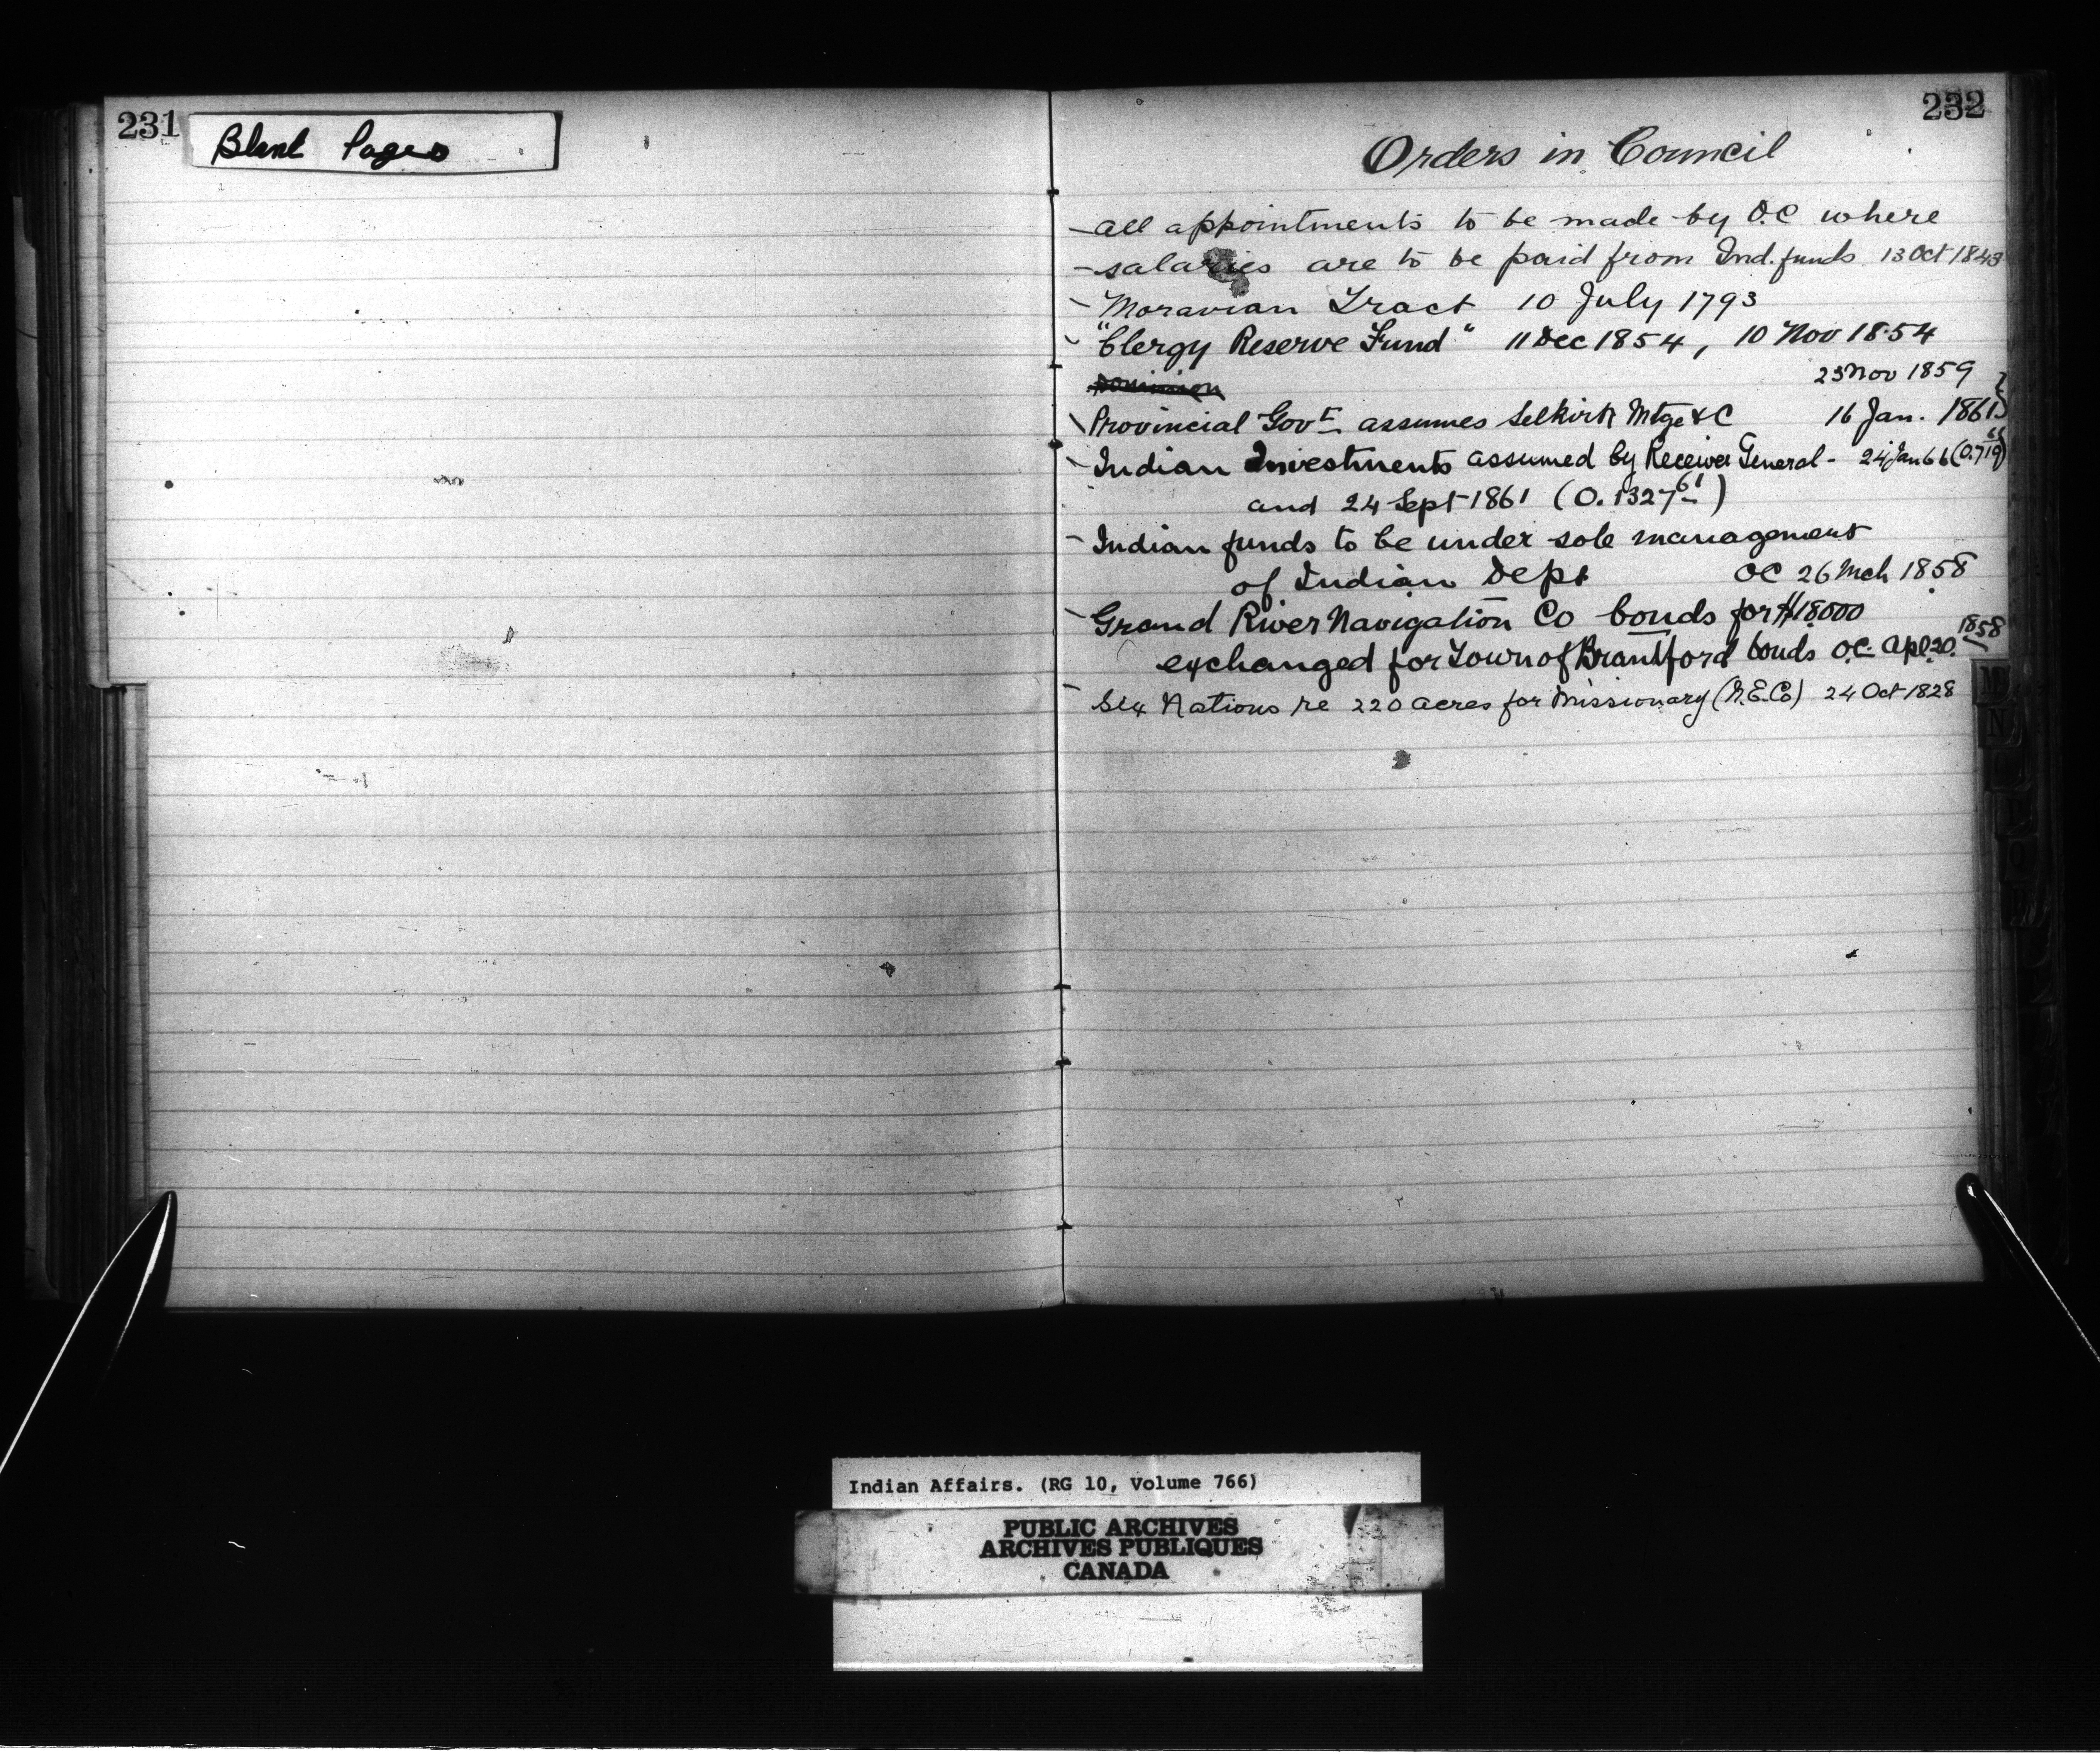 231
Blank Pages
232
Orders in Council
- all appointments to be made by O.C where
- salaries are to be paid from Ind. funds 13 Oct 1843
- Moravian Tract 10 July 1793
- "Clergy Reserve Fund" 11 Dec 1854, 10 Nov 1854
Dominion
23 Nov 1859
Provincial Govt assumes Selkirk Mtge &C 16 Jan. 1861
- Indian Investments assumed by Receiver General - 24 Jan 66
and 24 Sept 1861 (O. 1327 61)
- Indian funds to be under sole management
of Indian Dept OC 26 Mch 1858
- Grand River Navigation Co bonds for $18000
exchanged for Town of Brantford bonds O.C. Apl 20. 1858
- Six Nations re 220 acres for Missionary (N.E.Co) 24 Oct 1828
Indian Affairs. (RG 10, Volume 766)
PUBLIC ARCHIVES
ARCHIVES PUBLIQUES
CANADA